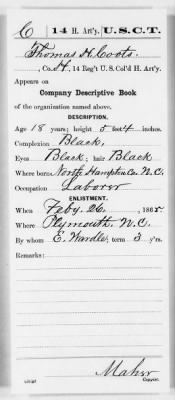 C | 14 H. Art'y. | U.S.C.T.
Thomas H. Coots.
, Co. H, 14 Reg't U. S. Col'd H. Art'y.
Appears on
Company Descriptive Book
of the organization named above.
DESCRIPTION.
Age 18 years; height 5 feet 4 inches.
Complexion Black,
Eyes Black; hair Black
Where born North Hampton Co. N.C.
Occupation Laborer
ENLISTMENT.
When Feby. 26, 1865
Where Plymouth, N.C.
By whom E. Wardle; term 3 y'rs.
Remarks:
Maher
Copyist.